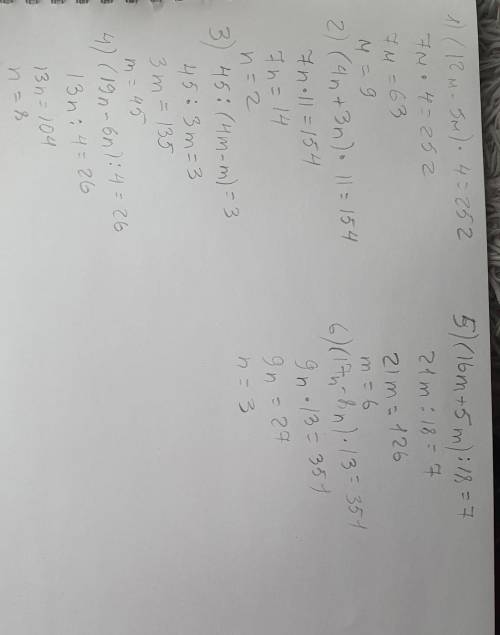 1) (12м-5м)·4=252
7м·4=252
7м=63
м=9
2) (4n+3n)·11=154
7n·11=154
7n=14
n=2
3) 45:(4m-m)=3
45:3m=3
3m=135
m=45
4) (19n-6n):4=26
13n:4=26
13n=104
n=8
5) (16m+5m):18=7
21m:18=7
21m=126
m=6
6) (17n-8n)·13=351
9n·13=351
9n=27
n=3